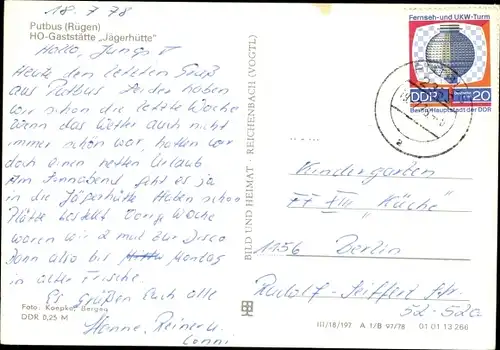 18.7.78
Putbus (Rügen)
HO-Gaststätte „Jägerhütte"
Hallo, Jungs!
Heute den letzten Gruß
aus Putbus. Leider haben
wir schon die letzte Woche
Wenn das Wetter auch nicht
immer schön war, hatten wir
doch einen netten Urlaub
Am Sonnabend geht es ja
in die Jägerhütte Haben schon
Plätze bestellt Vorige Woche
waren wir 2 mal zur Disco
Dann also bis Montag
in alter Frische.
Es grüßen Euch alle
Hanne, Reiner u.
Conni
Foto: Koepke, Bergen
DDR 0,25 M
BILD UND HEIMAT · REICHENBACH (VOGTL)
Fernseh- und UKW-Turm
DDR 20
Berlin Hauptstadt der DDR
a
Kindergarten
"Küche"
1156 Berlin
Rudolf-Seiffert Str.
52-52a
III/18/197 A 1/B 97/78 01 01 13 266